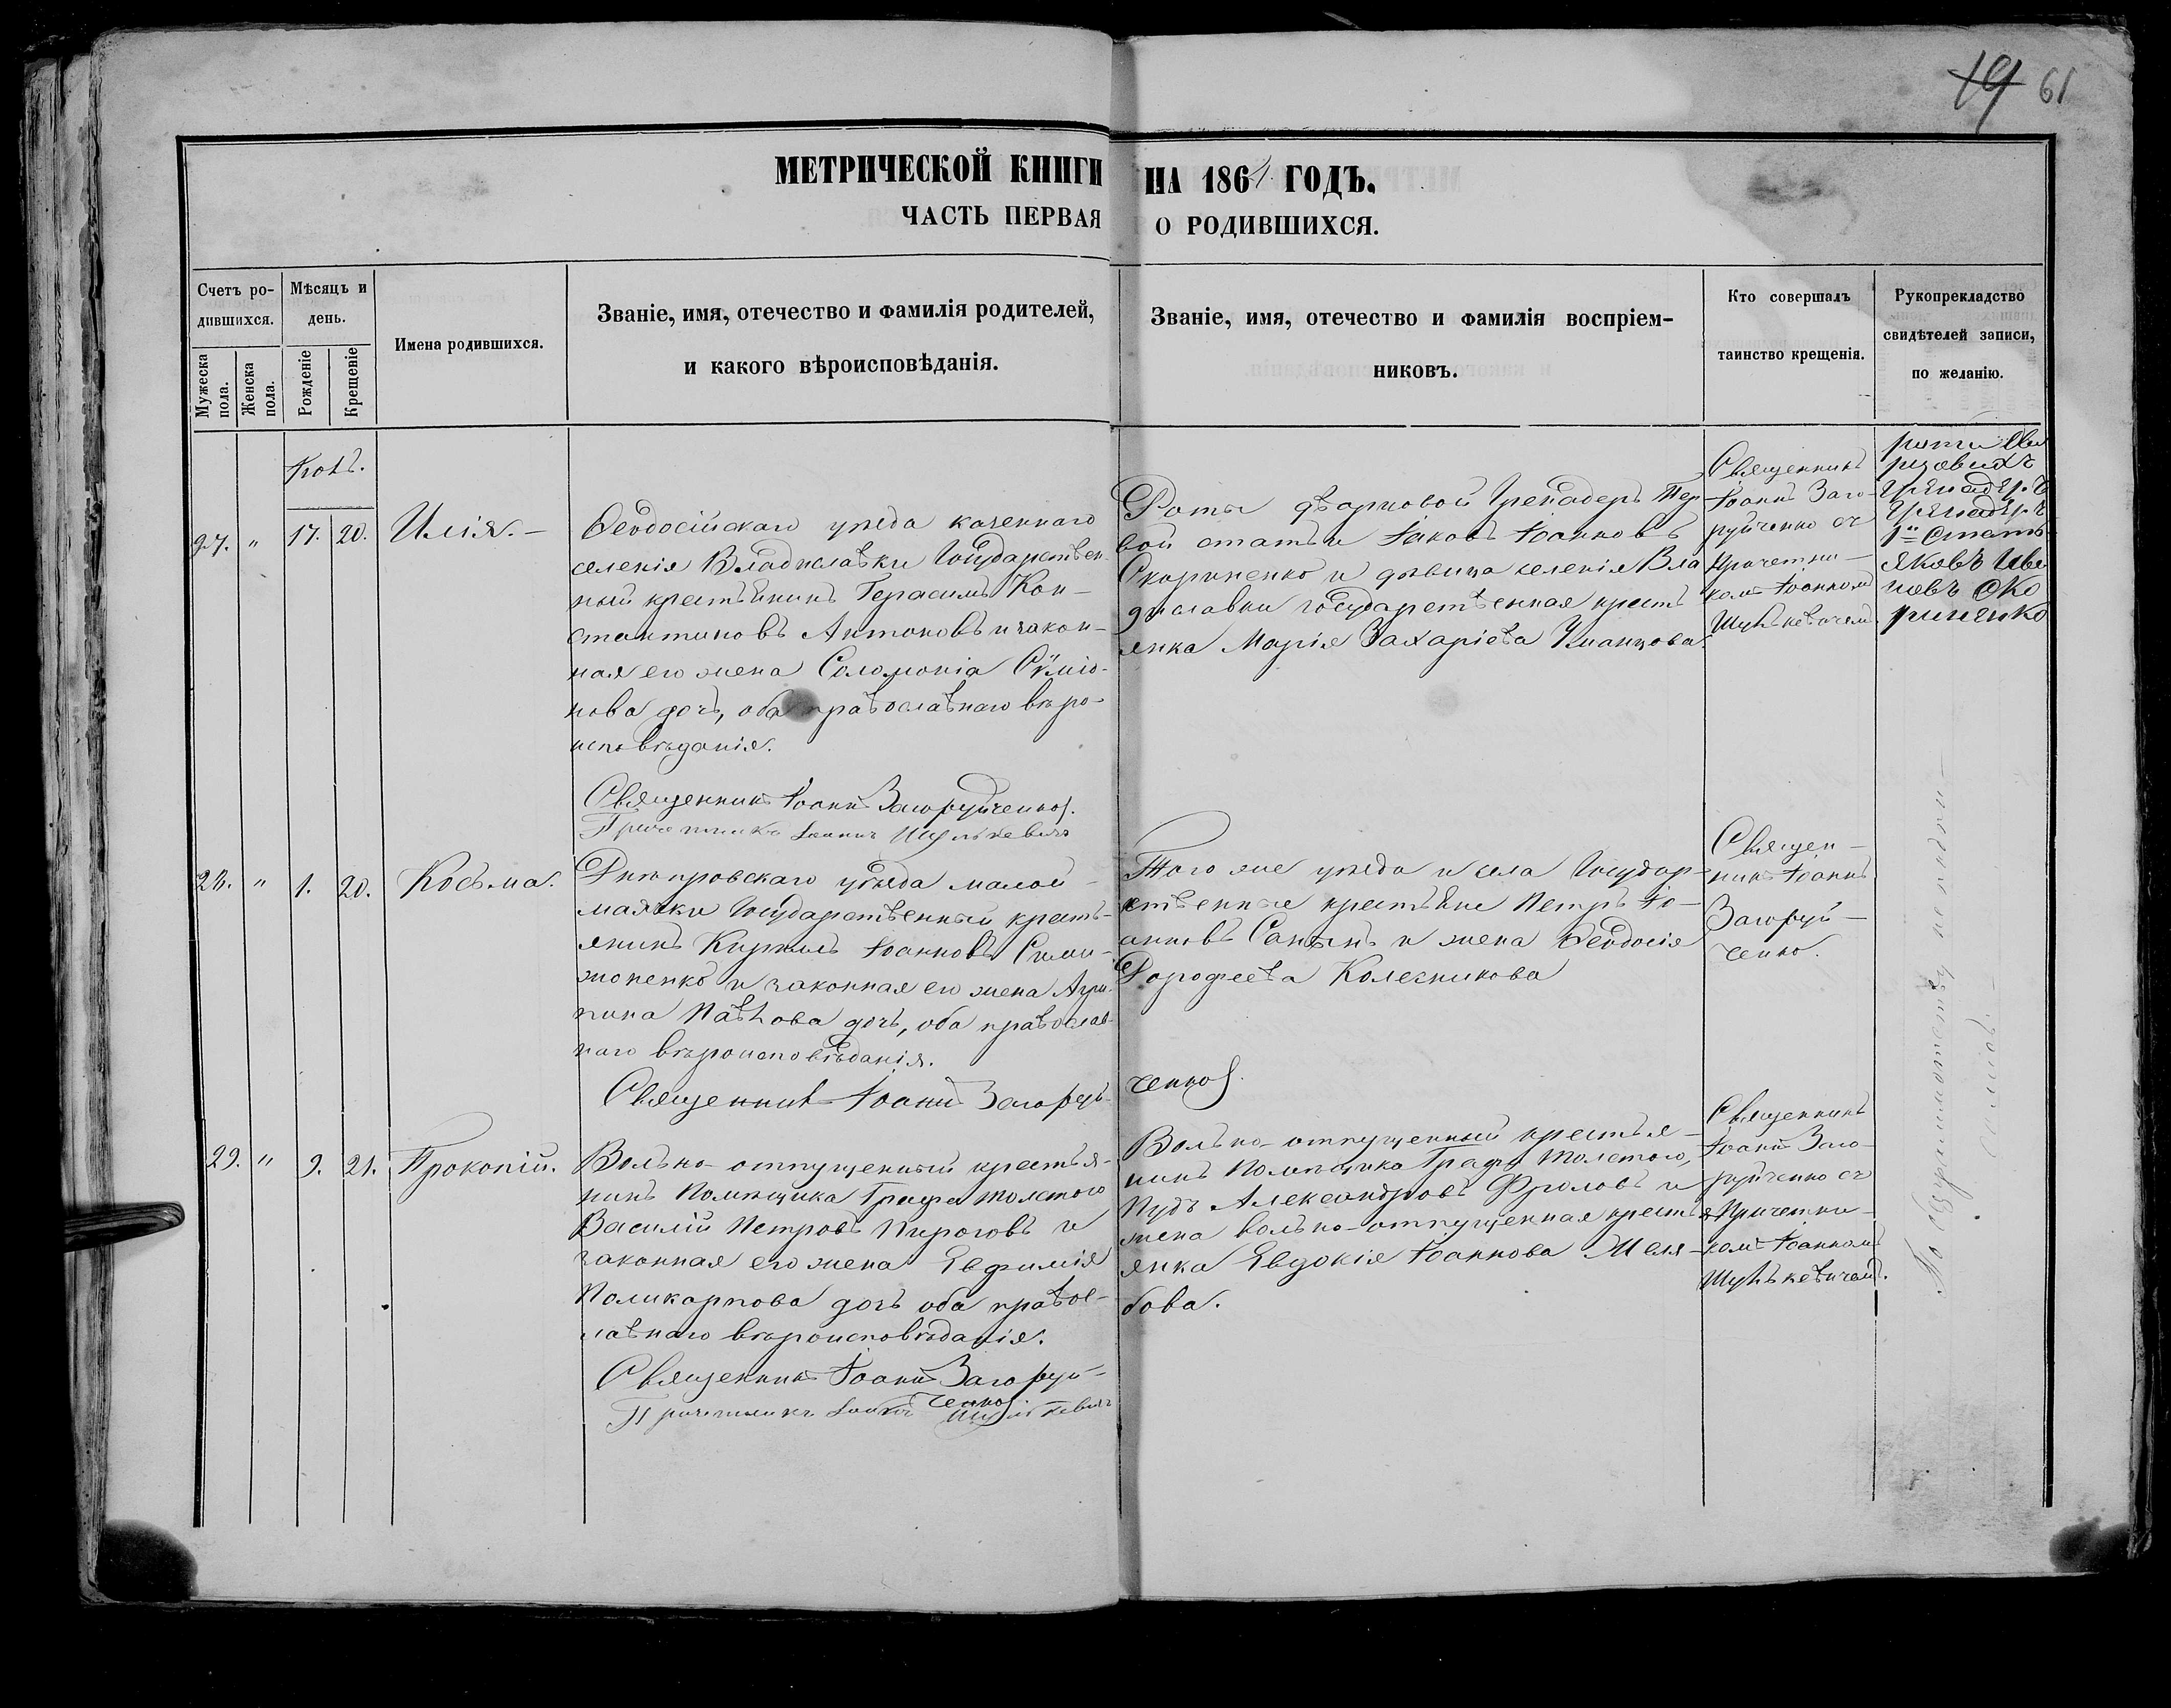 19 61
МЕТРИЧЕСКОЙ КНИГИ НА 1864 ГОДЪ.
ЧАСТЬ ПЕРВАЯ О РОДИВШИХСЯ.
Счетъ ро-
дившихся.
Мужеска
пола.
Женска
пола.
Мѣсяцъ и
день.
Рожденіе
Крещеніе
Имена родившихся.
Званіе, имя, отечество и фамилія родителей,
и какого вѣроисповѣданія.
Званіе, имя, отечество и фамилія воспріем-
никовъ.
Кто совершалъ
таинство крещенія.
Рукоприкладство
свидѣтелей записи,
по желанію.
27. " 17. 20. Илія.
Ѳеодосійскаго уѣзда казеннаго
селенія Владиславки Государствен
ный крестьянинъ Герасимъ Кон-
стантиновъ Антоновъ и закон-
ная его жена Соломонія Сѵміо-
нова дочь, оба православнаго вѣро-
исповѣданія.
Священникъ Іоаннъ Загоруйченко.
Причетникъ Іоаннъ Шулькевичъ
Роты Гренадеръ Пер-
вой статьи Іаковъ Іоанновъ
Скориненко и дѣвица селенія Вла
диславки государственная кресть
янка Марія Захаріева Уманцова.
Священникъ
Іоаннъ Заго-
руйченко съ
Причетни-
комъ Іоанномъ
Шулькевичемъ.
роти
Гренадеръ
1й Стать
Яковъ Ива
новъ Ско
риненко
28. " 1. 20. Косьма.
Днѣпровскаго уѣзда малой
маячки Государственный кресть-
янинъ Кириллъ Іоанновъ Сили-
моненко и законная его жена Агри-
пина Павлова дочь, оба православ-
наго вѣроисповѣданія.
Священникъ Іоаннъ Загоруй-
ченко.
Того же уѣзда и села Государ-
ственные крестьяне Петръ Іо-
анновъ и жена Ѳеодосія
Дорофеева Колесникова
Священ-
никъ Іоаннъ
Загоруй-
ченко.
29. " 9. 21. Прокопій.
Вольно-отпущенный крестья-
нинъ Помѣщика Графа Толстого
Василій Петровъ Пироговъ и
законная его жена Евфимія
Поликарпова дочь оба правос-
лавнаго вѣроисповѣданія.
Священникъ Іоаннъ Загоруй-
ченко.
Причетникъ Іоаннъ Шулькевичъ
Вольно-отпущенный крестья-
нинъ Помѣщика Графа Толстого,
Пудъ Александровъ Фроловъ и
жена вольно-отпущенная кресть
янка Евдокія Іоаннова Желя-
бова.
Священникъ
Іоаннъ Заго-
руйченко съ
Причетни-
комъ Іоанномъ
Шулькевичемъ.
По неграмотству